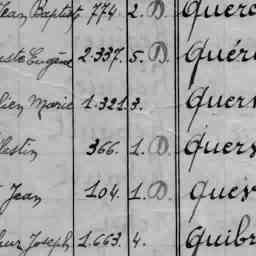 Jean Baptist 774. 2. D. Querc
uste Eugène 2.337. 5. D. Quér
lien Marie 1.321. 3. Quer
lestin 366. 1. D. Quers
Jean 104. 1. D. Ques
hur Joseph 1.663. 4. Quibr